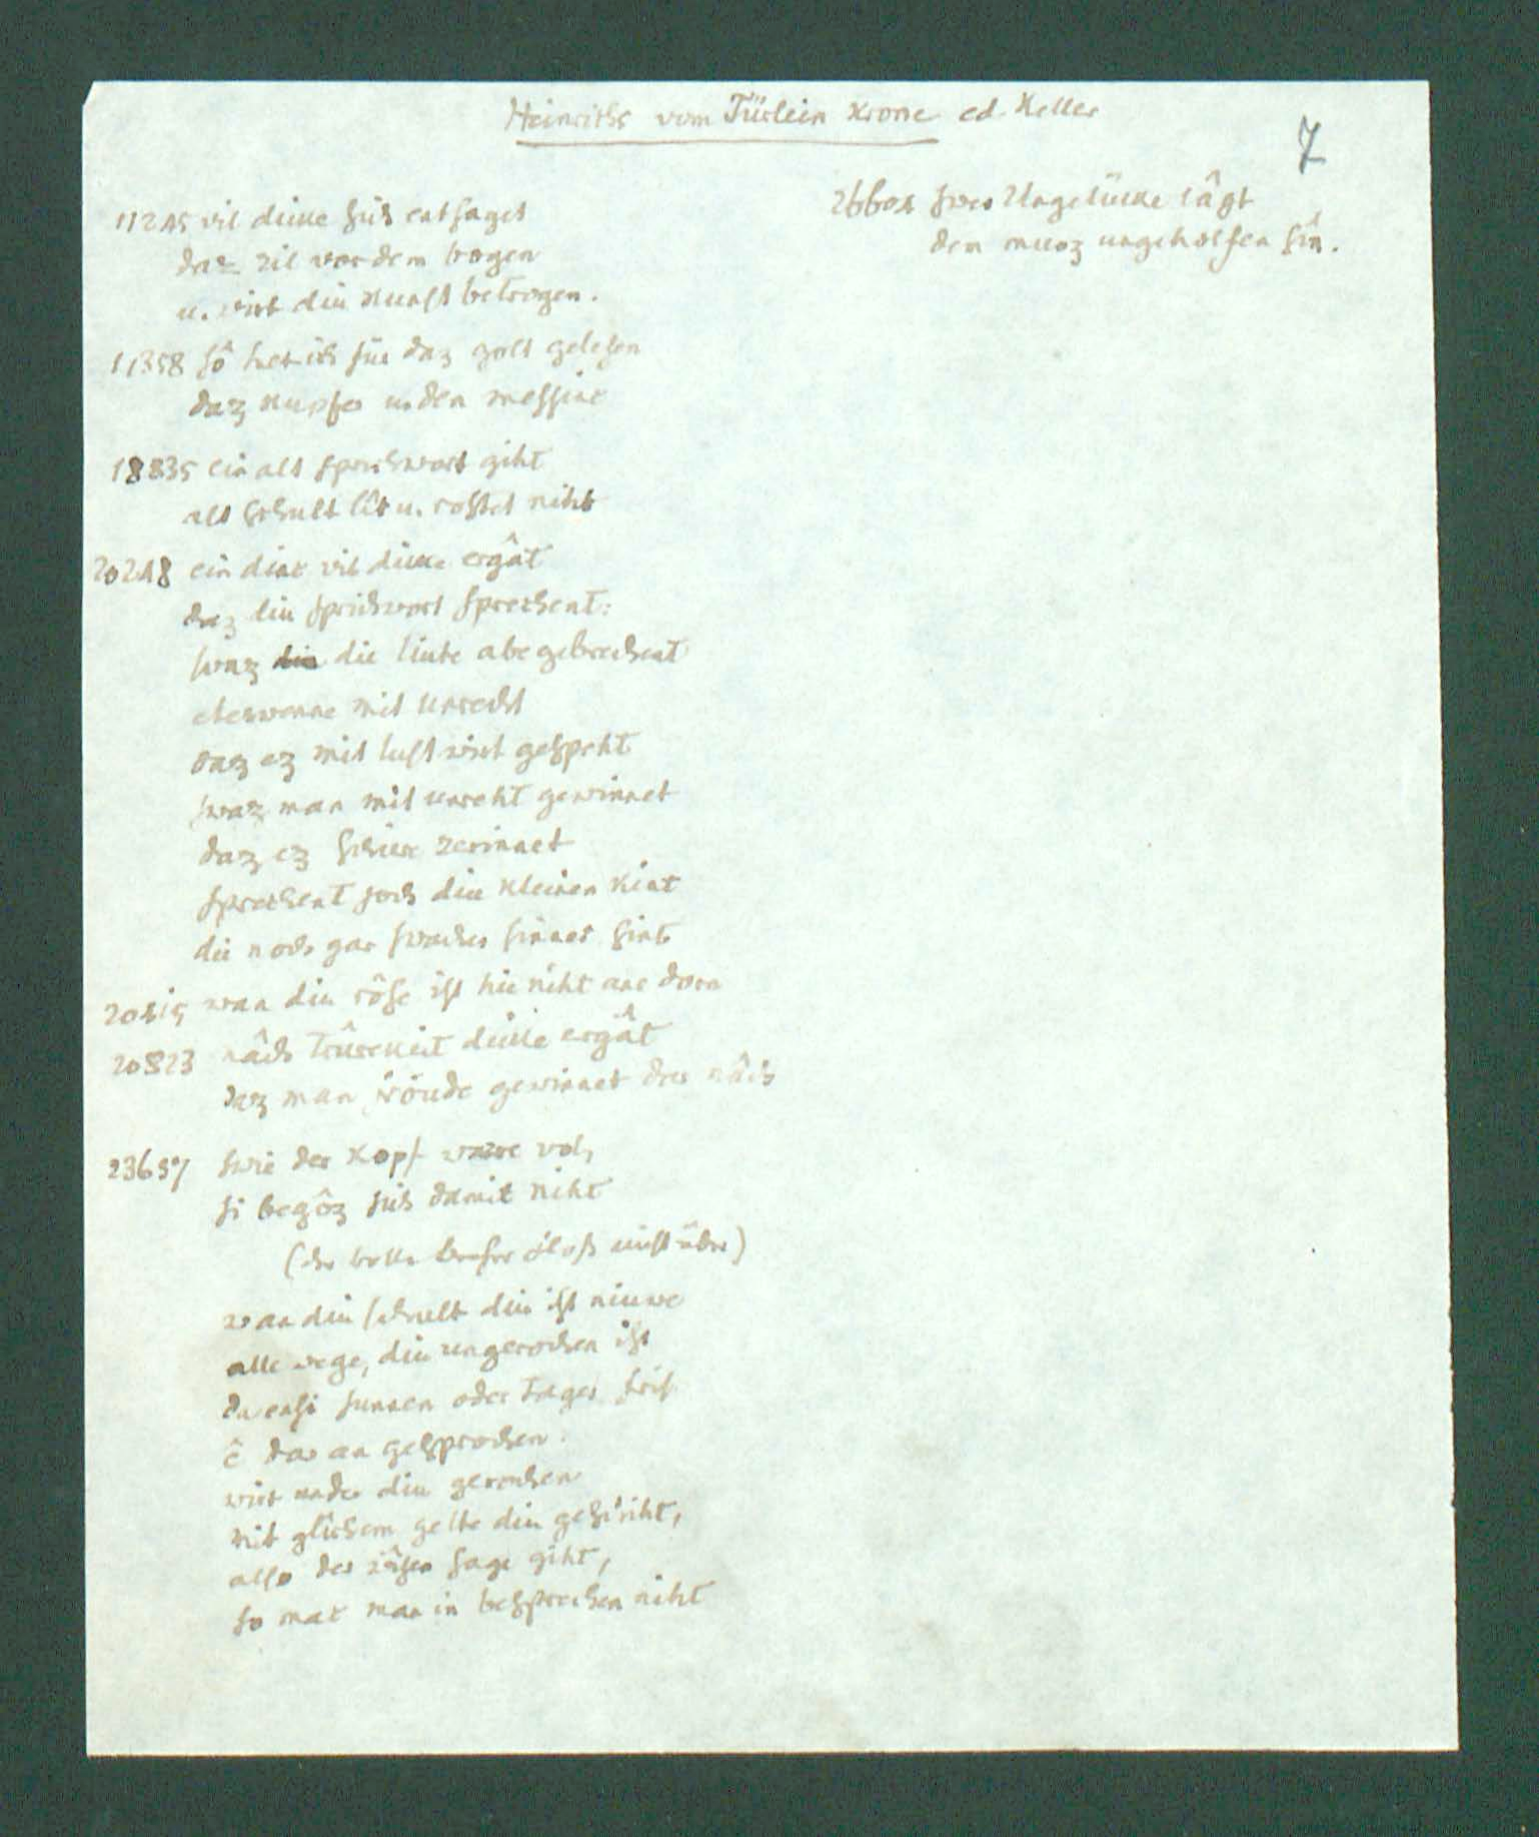 Heinrichs vom Türlein Krone ed. Keller
7
11245 vil dicke sich entsaget
daz zil vor dem bogen
u. wirt diu Kunst betrogen.
11358 sô het ich für daz golt gelesen
daz kupfer u. den messinc
18835 ein alt sprichwort giht
alt schult lît u. rostet niht
20248 ein dinc vil dicke ergât
daz diu sprichwort sprechent:
swaz die liute abe gebrechent
eteswenne mit unrecht
daz ez mit luft wirt gespeht
swaz man mit unreht gewinnet
daz ez schiere zerinnet
sprechent joch diu kleinen kint
die noch gar swacher sinnes sint
20415 wan diu rôse ist hie niht ane dorn
20823 nâch trûrekeit dicke ergât
daz man vröude gewinnet dar nâch
23657 swie der Kopf waere vol,
si begôz sich damit niht
(der volle nicht über)
wan diu schult diu ist niuwe
alle wege, diu ungerochen ist
da ensi sunnen oder tages frist
ê dar an gesprochen.
wirt diu gerochen
mit glîchem gelte diu geschiht,
also der wîsen sage giht,
so mac man in besprechen niht
26601 swer Ungelücke tägt
dem muoz ungeholfen sîn.